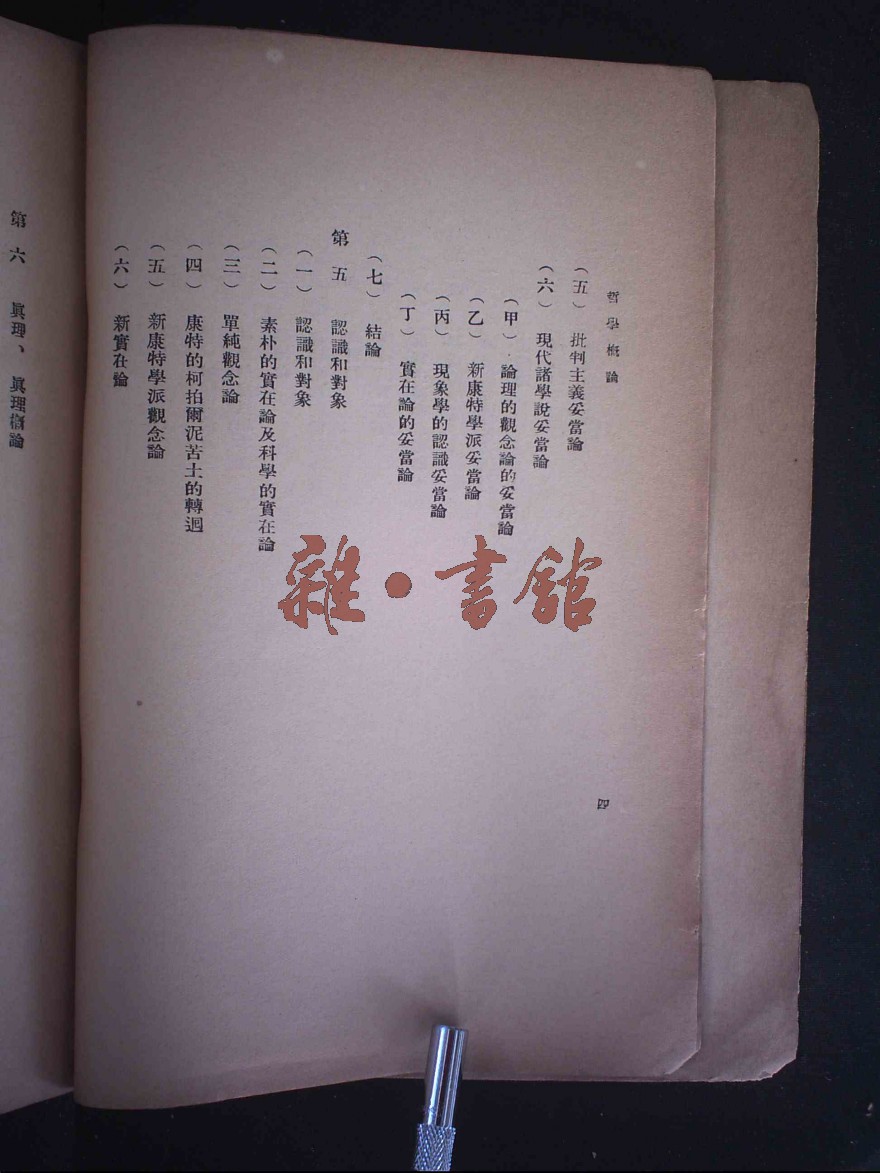 哲學概論
(五) 批判主義妥當論
(六) 現代諸學說妥當論
(甲) 論理的觀念論的妥當論
(乙) 新康特學派妥當論
(丙) 現象學的認識妥當論
(丁) 實在論的妥當論
(七) 結論
第五 認識和對象
(一) 認識和對象
(二) 素朴的實在論及科學的實在論
(三) 單純觀念論
(四) 康特的柯拍爾泥苦士的轉迴
(五) 新康特學派觀念論
(六) 新實在論
四
第六 眞理、眞理概論
雜·書館